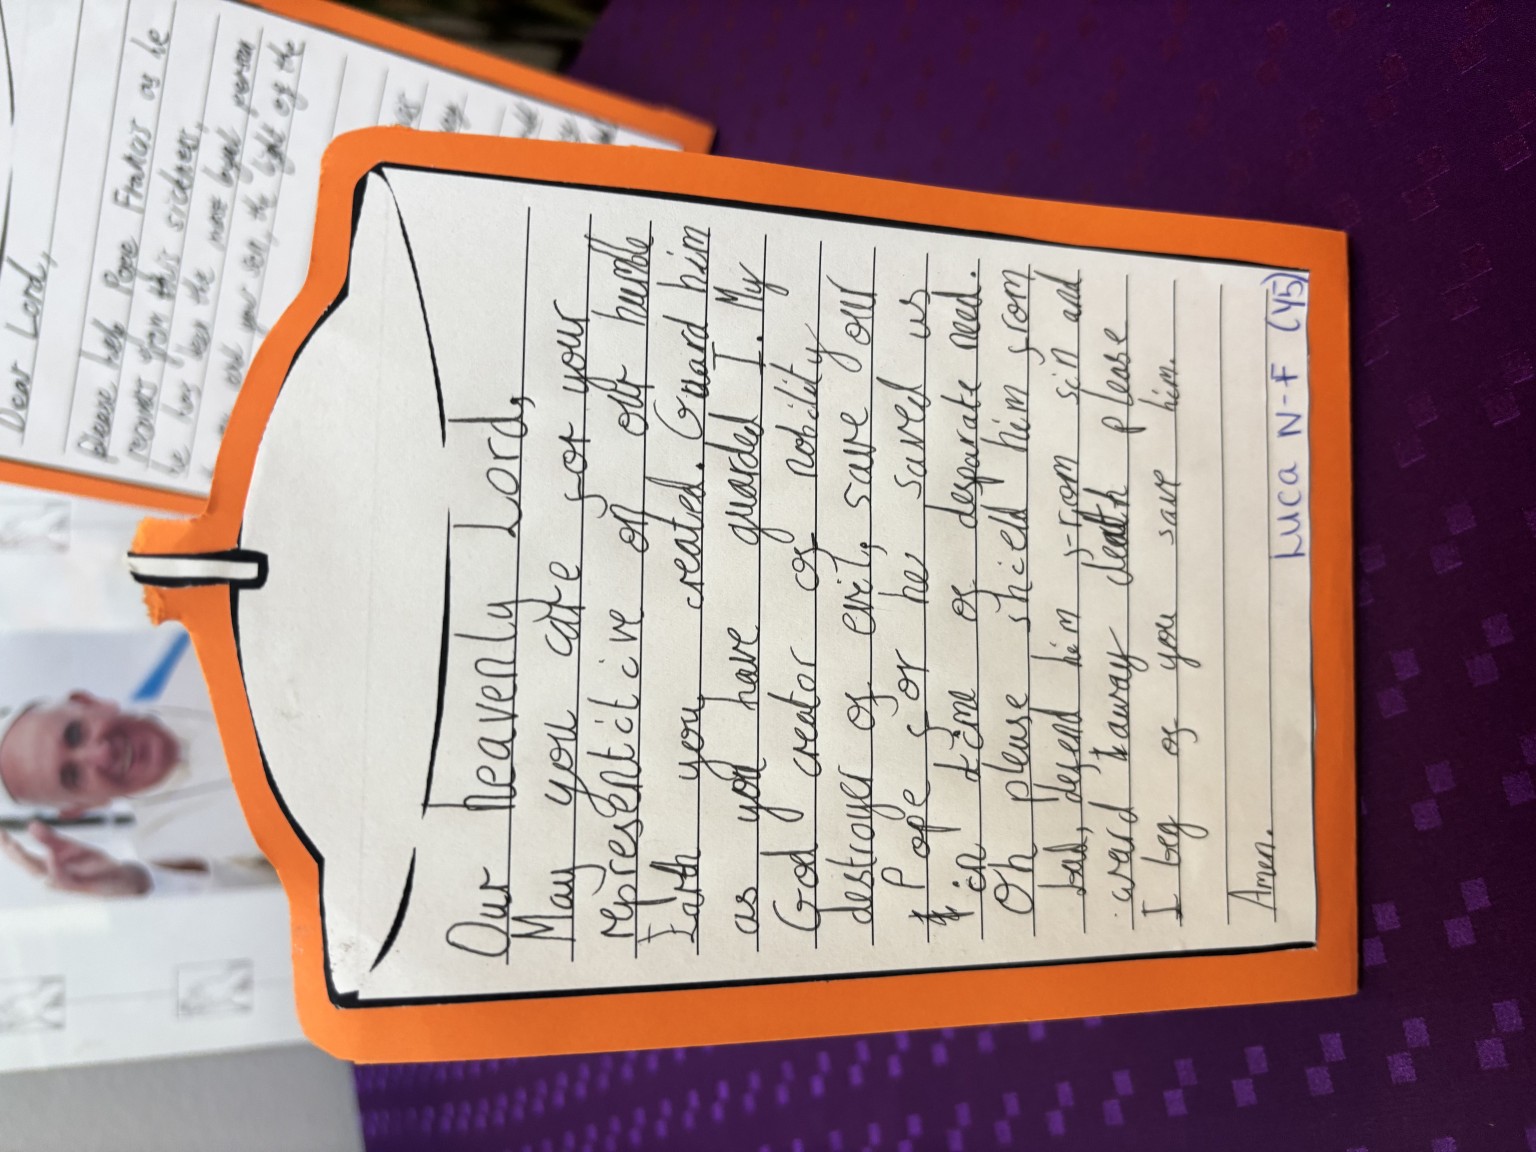 Our heavenly Lord,
May you care for your
representitive on our humble
Earth you created. Guard him
as you have guarded I. My
God creator of nobility
destroyer of evil, save our
Pope for he saved us
in time of desparate need.
Oh please shield him from
bad, defend him from sin and
award away death please
I beg of you save him.
Amen.
Luca N-F (Y5)
Dear Lord,
please help Pope Francis as he
recovers from this sickness,
he has been the most loyal person
and your son, the light of the